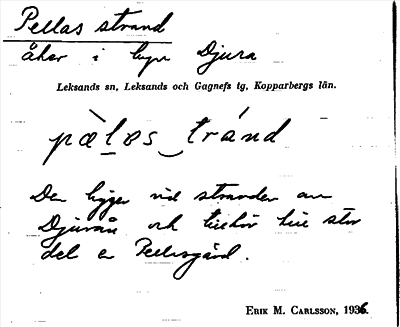 Pellas strand
åker i byn Djura
Leksands sn, Leksands och Gagnefs tg, Kopparbergs län.
pè̱ḻos‿tránd
Den ligger vid stranden av
Djurån och tillhör till stor
del e Pellasgård.
Erik M. Carlsson, 1936.